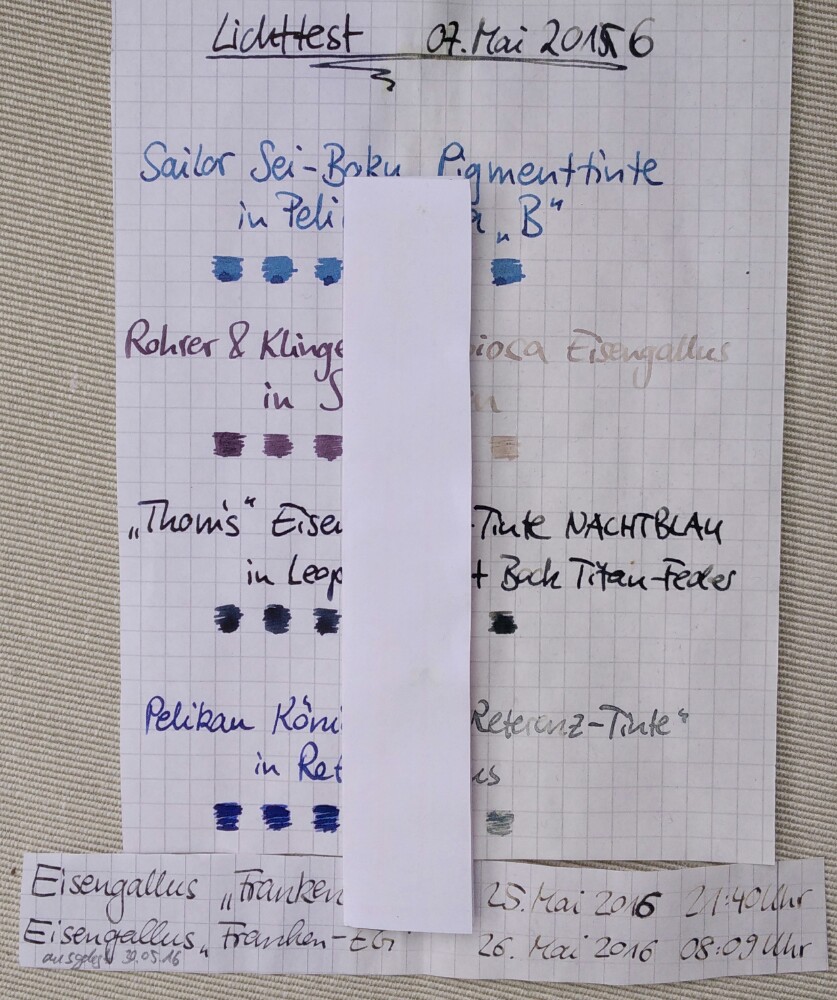 Lichttest 07. Mai 2016
Sailor Sei-Boku Pigmenttinte
in Peli „B“
Rohrer & Klinge iosa Eisengallus
in S n
„Thom's“ Eisen -Tinte NACHTBLAU
in Leop + Bock Titan-Feder
Pelikan Köni Referenz-Tinte“
in Ret us
Eisengallus „Franken 25. Mai 2016 21:40 Uhr
Eisengallus „Franken-EG 26. Mai 2016 08:09 Uhr
ausgelegt 30.05.16